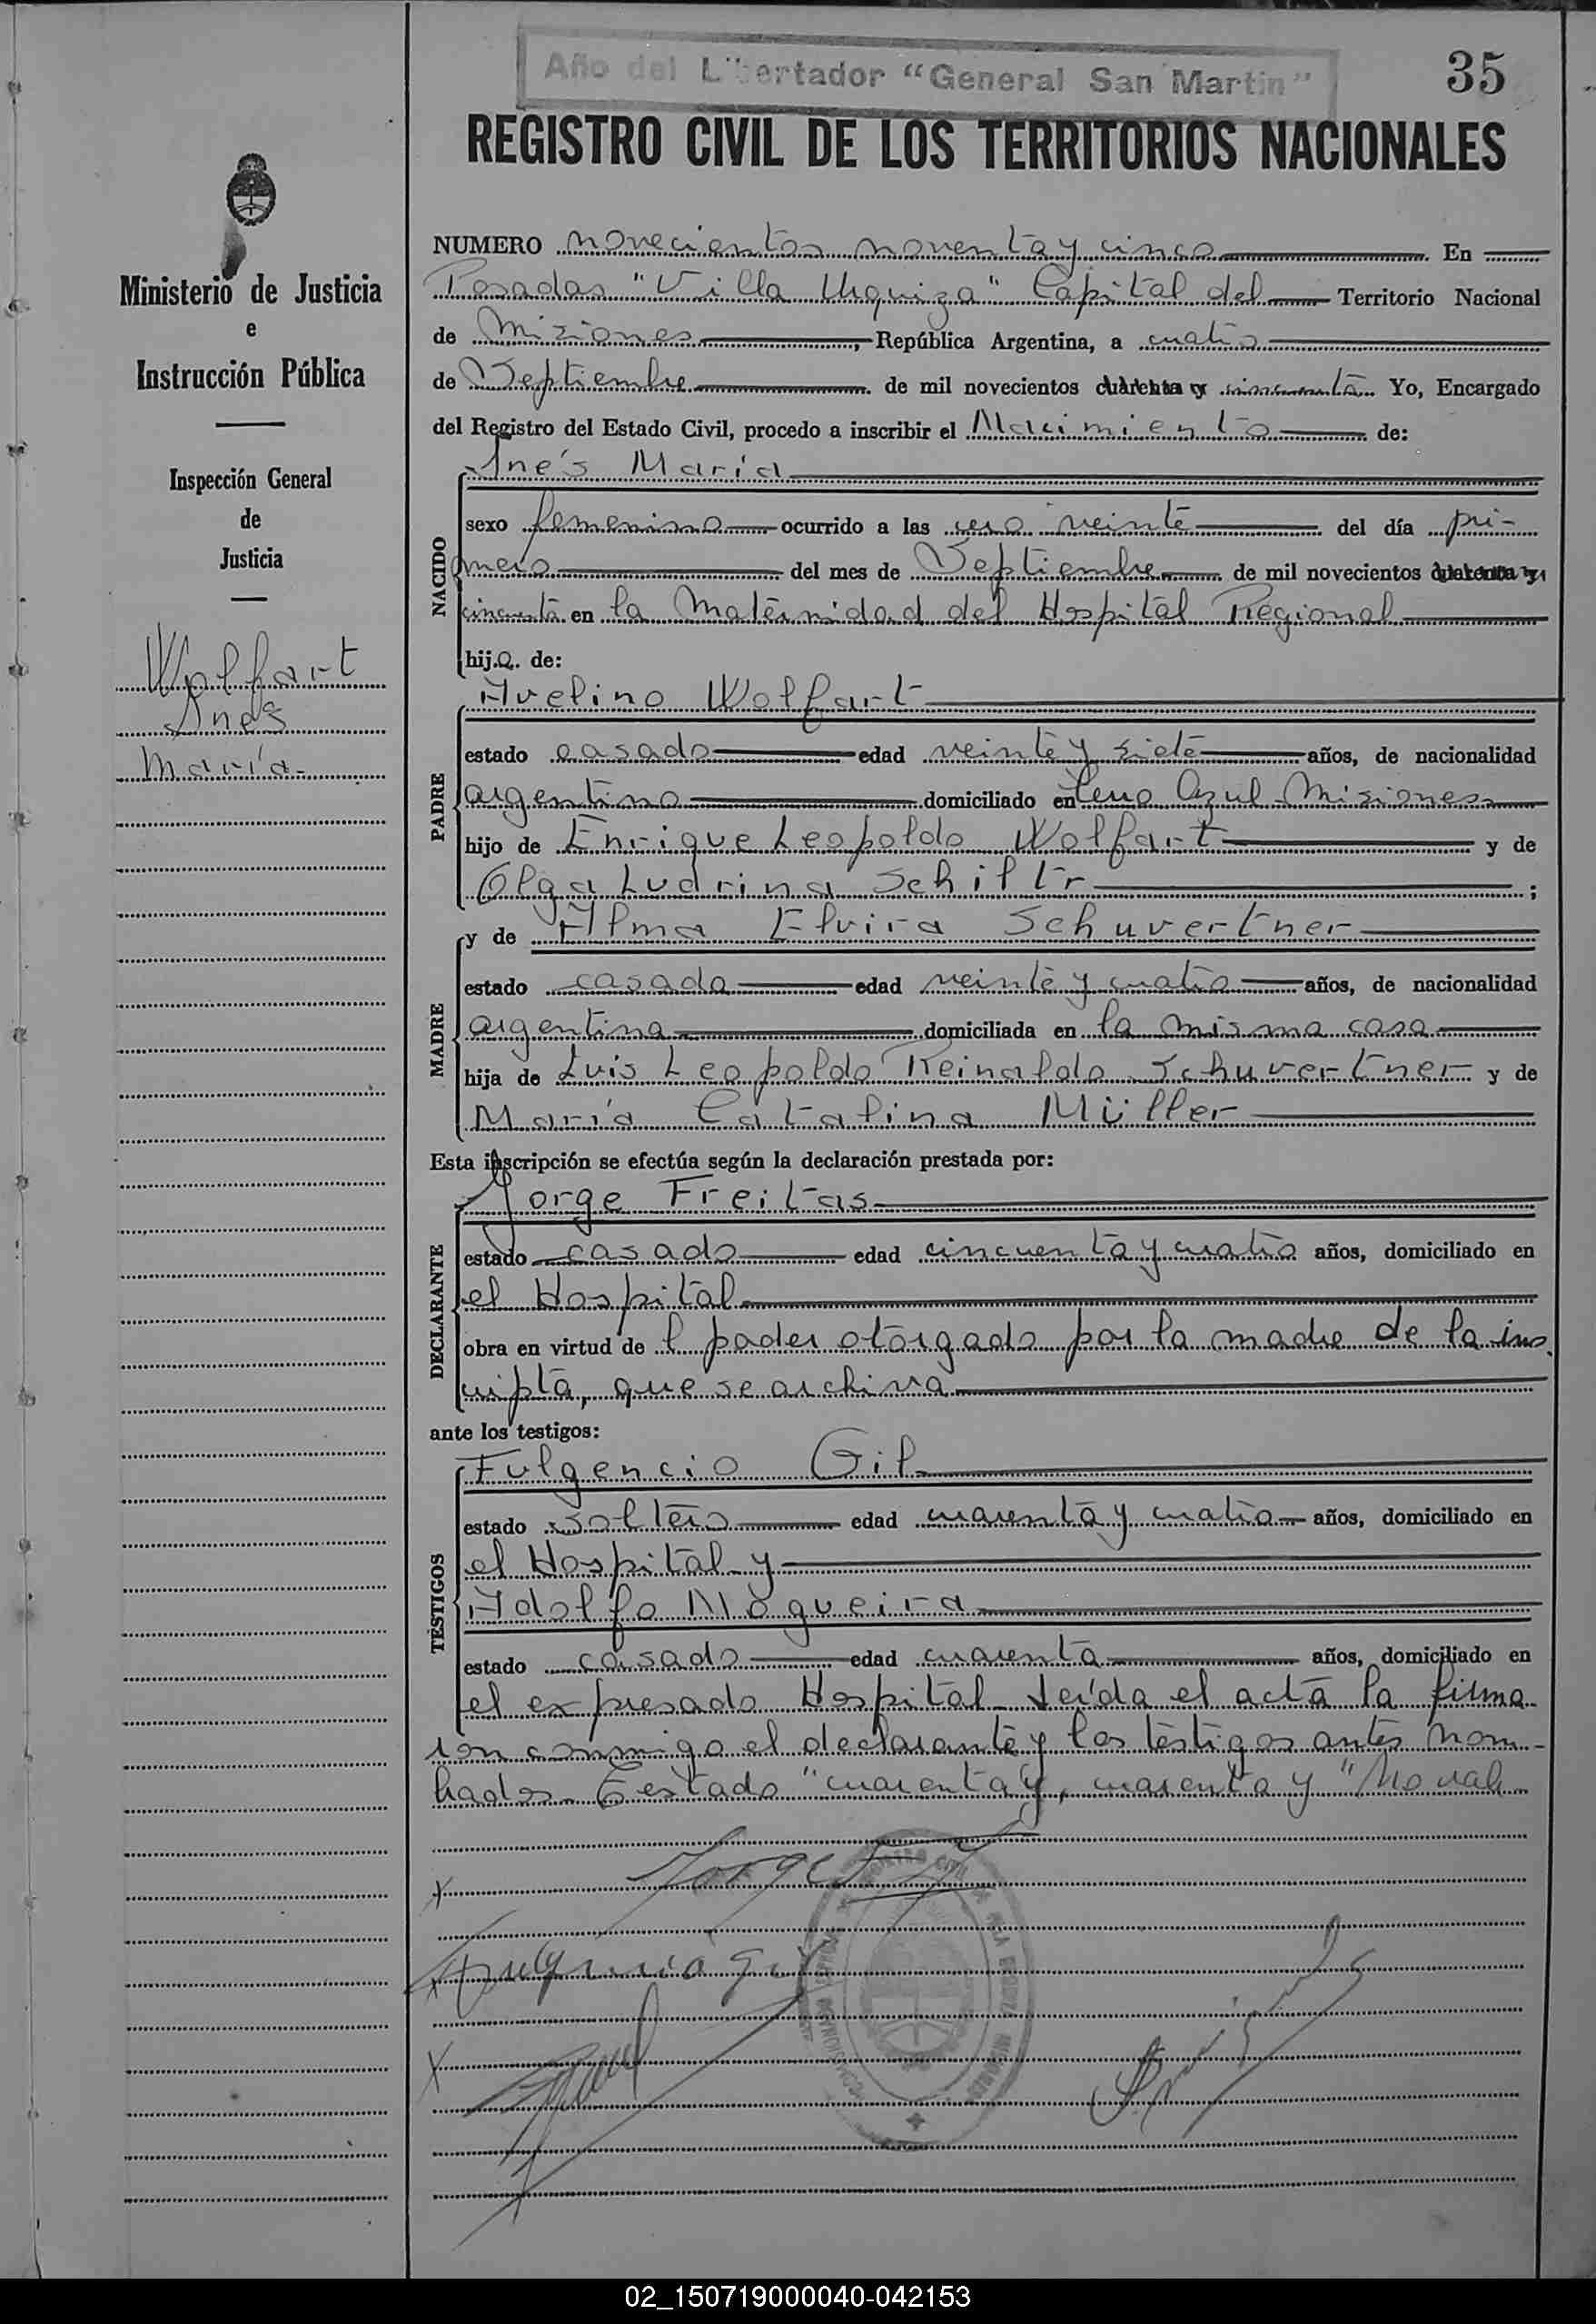 Año del Libertador "General San Martin"
35
REGISTRO CIVIL DE LOS TERRITORIOS NACIONALES
Ministerio de Justicia
e
Instrucción Pública
Inspección General
de
Justicia
Wolfart
Inés
María
NUMERO novecientos noventa y cinco En
Posadas "Villa Urquiza" Capital del Territorio Nacional
de Misiones, República Argentina, a cuatro
de Septiembre de mil novecientos cuarenta y cincuenta Yo, Encargado
del Registro del Estado Civil, procedo a inscribir el Nacimiento de:
NACIDO
Inés María
sexo femenino ocurrido a las cero veinte del día pri-
mero del mes de Septiembre de mil novecientos cuarenta y
cincuenta en la Maternidad del Hospital Regional
hija de:
PADRE
Avelino Wolfart
estado casado edad veinte y siete años, de nacionalidad
argentino domiciliado en Cerro Azul Misiones
hijo de Enrique Leopoldo Wolfart y de
Olga Ludrina Schiltr;
MADRE
y de Alma Elvira Schuvertner
estado casada edad veinte y cuatro años, de nacionalidad
argentina domiciliada en la misma casa
hija de Luis Leopoldo Reinaldo Schuvertner y de
María Catalina Müller
Esta inscripción se efectúa según la declaración prestada por:
DECLARANTE
Jorge Freitas
estado casado edad cincuenta y cuatro años, domiciliado en
el Hospital
obra en virtud de l poder otorgado por la madre de la ins
cripta, que se archiva
ante los testigos:
TESTIGOS
Fulgencio Gil
estado soltero edad cuarenta y cuatro años, domiciliado en
el Hospital y
Adolfo Nogueira
estado casado edad cuarenta años, domiciliado en
el expresado Hospital Leída el acta la firma
ron conmigo el declarante y los testigos antes nom-
brados. Testado "cuarenta y, cuarenta y" No vale
Jorge
Fulgencio Gil
02_150719000040-042153